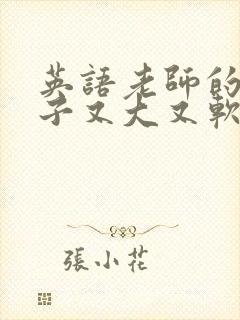 英語老師的
子又大又軟
張小花